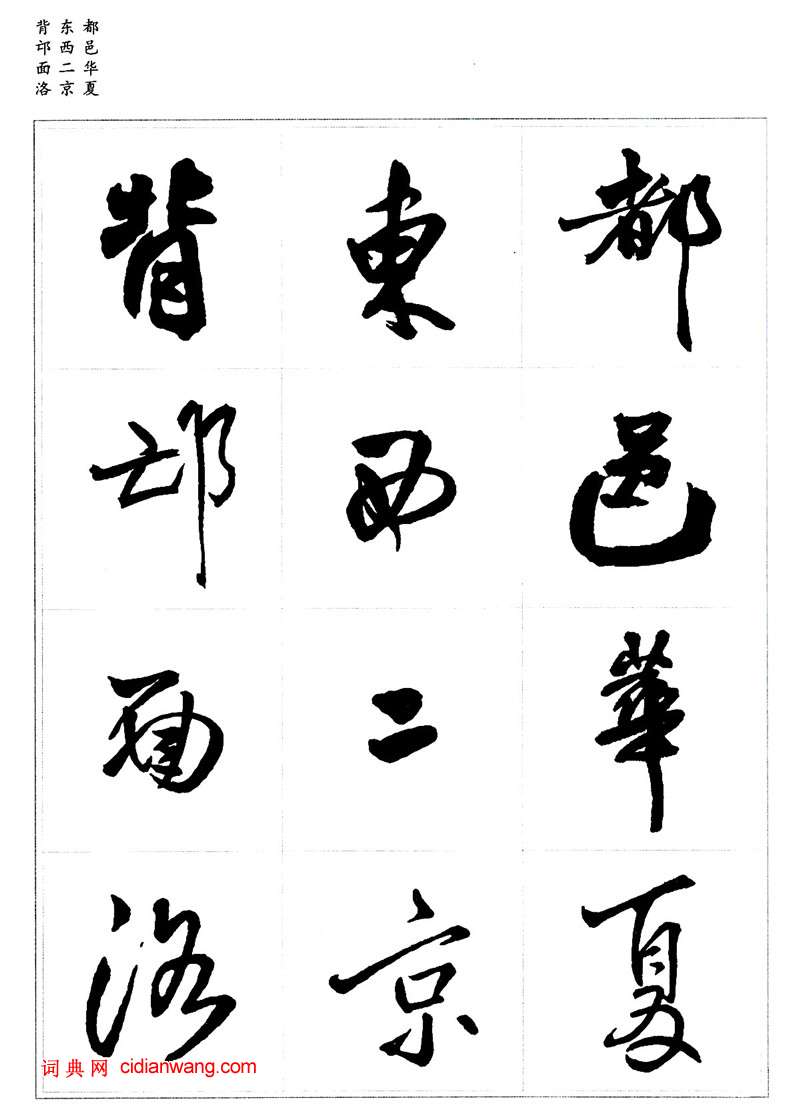 都邑华夏
东西二京
背邙面洛
都邑華夏
東西二京
背邙面洛
词典网 cidianwang.com